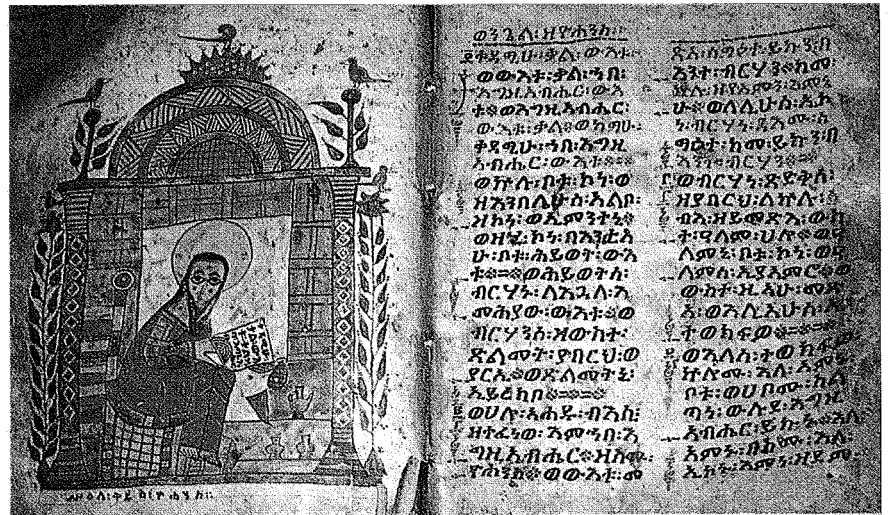 ሥዕለ፡ቅዱስ፡ዮሐንስ።
ወንጌል፡ዘዮሐንስ።
ቀዳሚሁ፡ቃል፡ውእቱ፡
ወውእቱ፡ቃል፡ኀበ፡
እግዚአብሔር፡ውእ
ቱ፡ወእግዚአብሔር፡
ውእቱ፡ቃል፡ወከማሁ፡
ቀዳሚሁ፡ኀበ፡እግዚ
አብሔር፡ውእቱ።
ወኵሉ፡ቦቱ፡ኮነ፡ወ
ዘእንበሌሁሰ፡አልቦ፡
ዘኮነ፡ወኢምንተኒ።
ወዘሂ፡ኮነ፡በእንቲአ
ሁ፡ቦቱ፡ሕይወት፡ውእ
ቱ።ወሕይወትሰ፡
ብርሃኑ፡ለእጓለ፡እ
መሕያው፡ውእቱ።ወ
ብርሃንሰ፡ዘውስተ፡
ጽልመት፡ያበርህ፡ወ
ያርኢ።ወጽልመትኒ፡
ኢይረክቦ።
ወሀሎ፡አሐዱ፡ብእሲ፡
ዘተፈነወ፡እምኀበ፡እ
ግዚአብሔር።ዘስሙ፡
ዮሐንስ።ወውእቱ፡መ
ጽአ፡ሰማዕተ፡ይኩን፡በ
እንተ፡ብርሃን።ከመ፡
ኵሉ፡ዘየአምን፡እምኔ
ሁ።ወለሊሁሰ፡ኢኮ
ነ፡ብርሃነ፡ዳእሙ፡ሰ
ማዕተ፡ከመ፡ይኩን፡በ
እንተ፡ብርሃን።
ወብርሃነ፡ጽድቅሰ፡
ዘያበርህ፡ለኵሉ፡ሰ
ብእ፡ዘይመጽእ፡ውስ
ተ፡ዓለም፡ሀሎ።ወዓ
ለምኒ፡ቦቱ፡ኮነ፡ወዓ
ለምሰ፡ኢያእመሮ።ወ
ውስተ፡ዚአሁ፡መጽ
አ፡ወእሊአሁሰ፡ኢ
ተወክፍዎ።
ወእለሰ፡ተወክፍዎ
ኵሎሙ፡እለ፡አምኑ፡
ቦቱ፡ወሀቦሙ፡ሥል
ጣነ፡ውሉደ፡እግዚ
አብሔር፡ይኩኑ።እለ፡
አምኑ፡በስሙ፡እለ፡
ኢኮኑ፡እምነ፡ዘደም፡